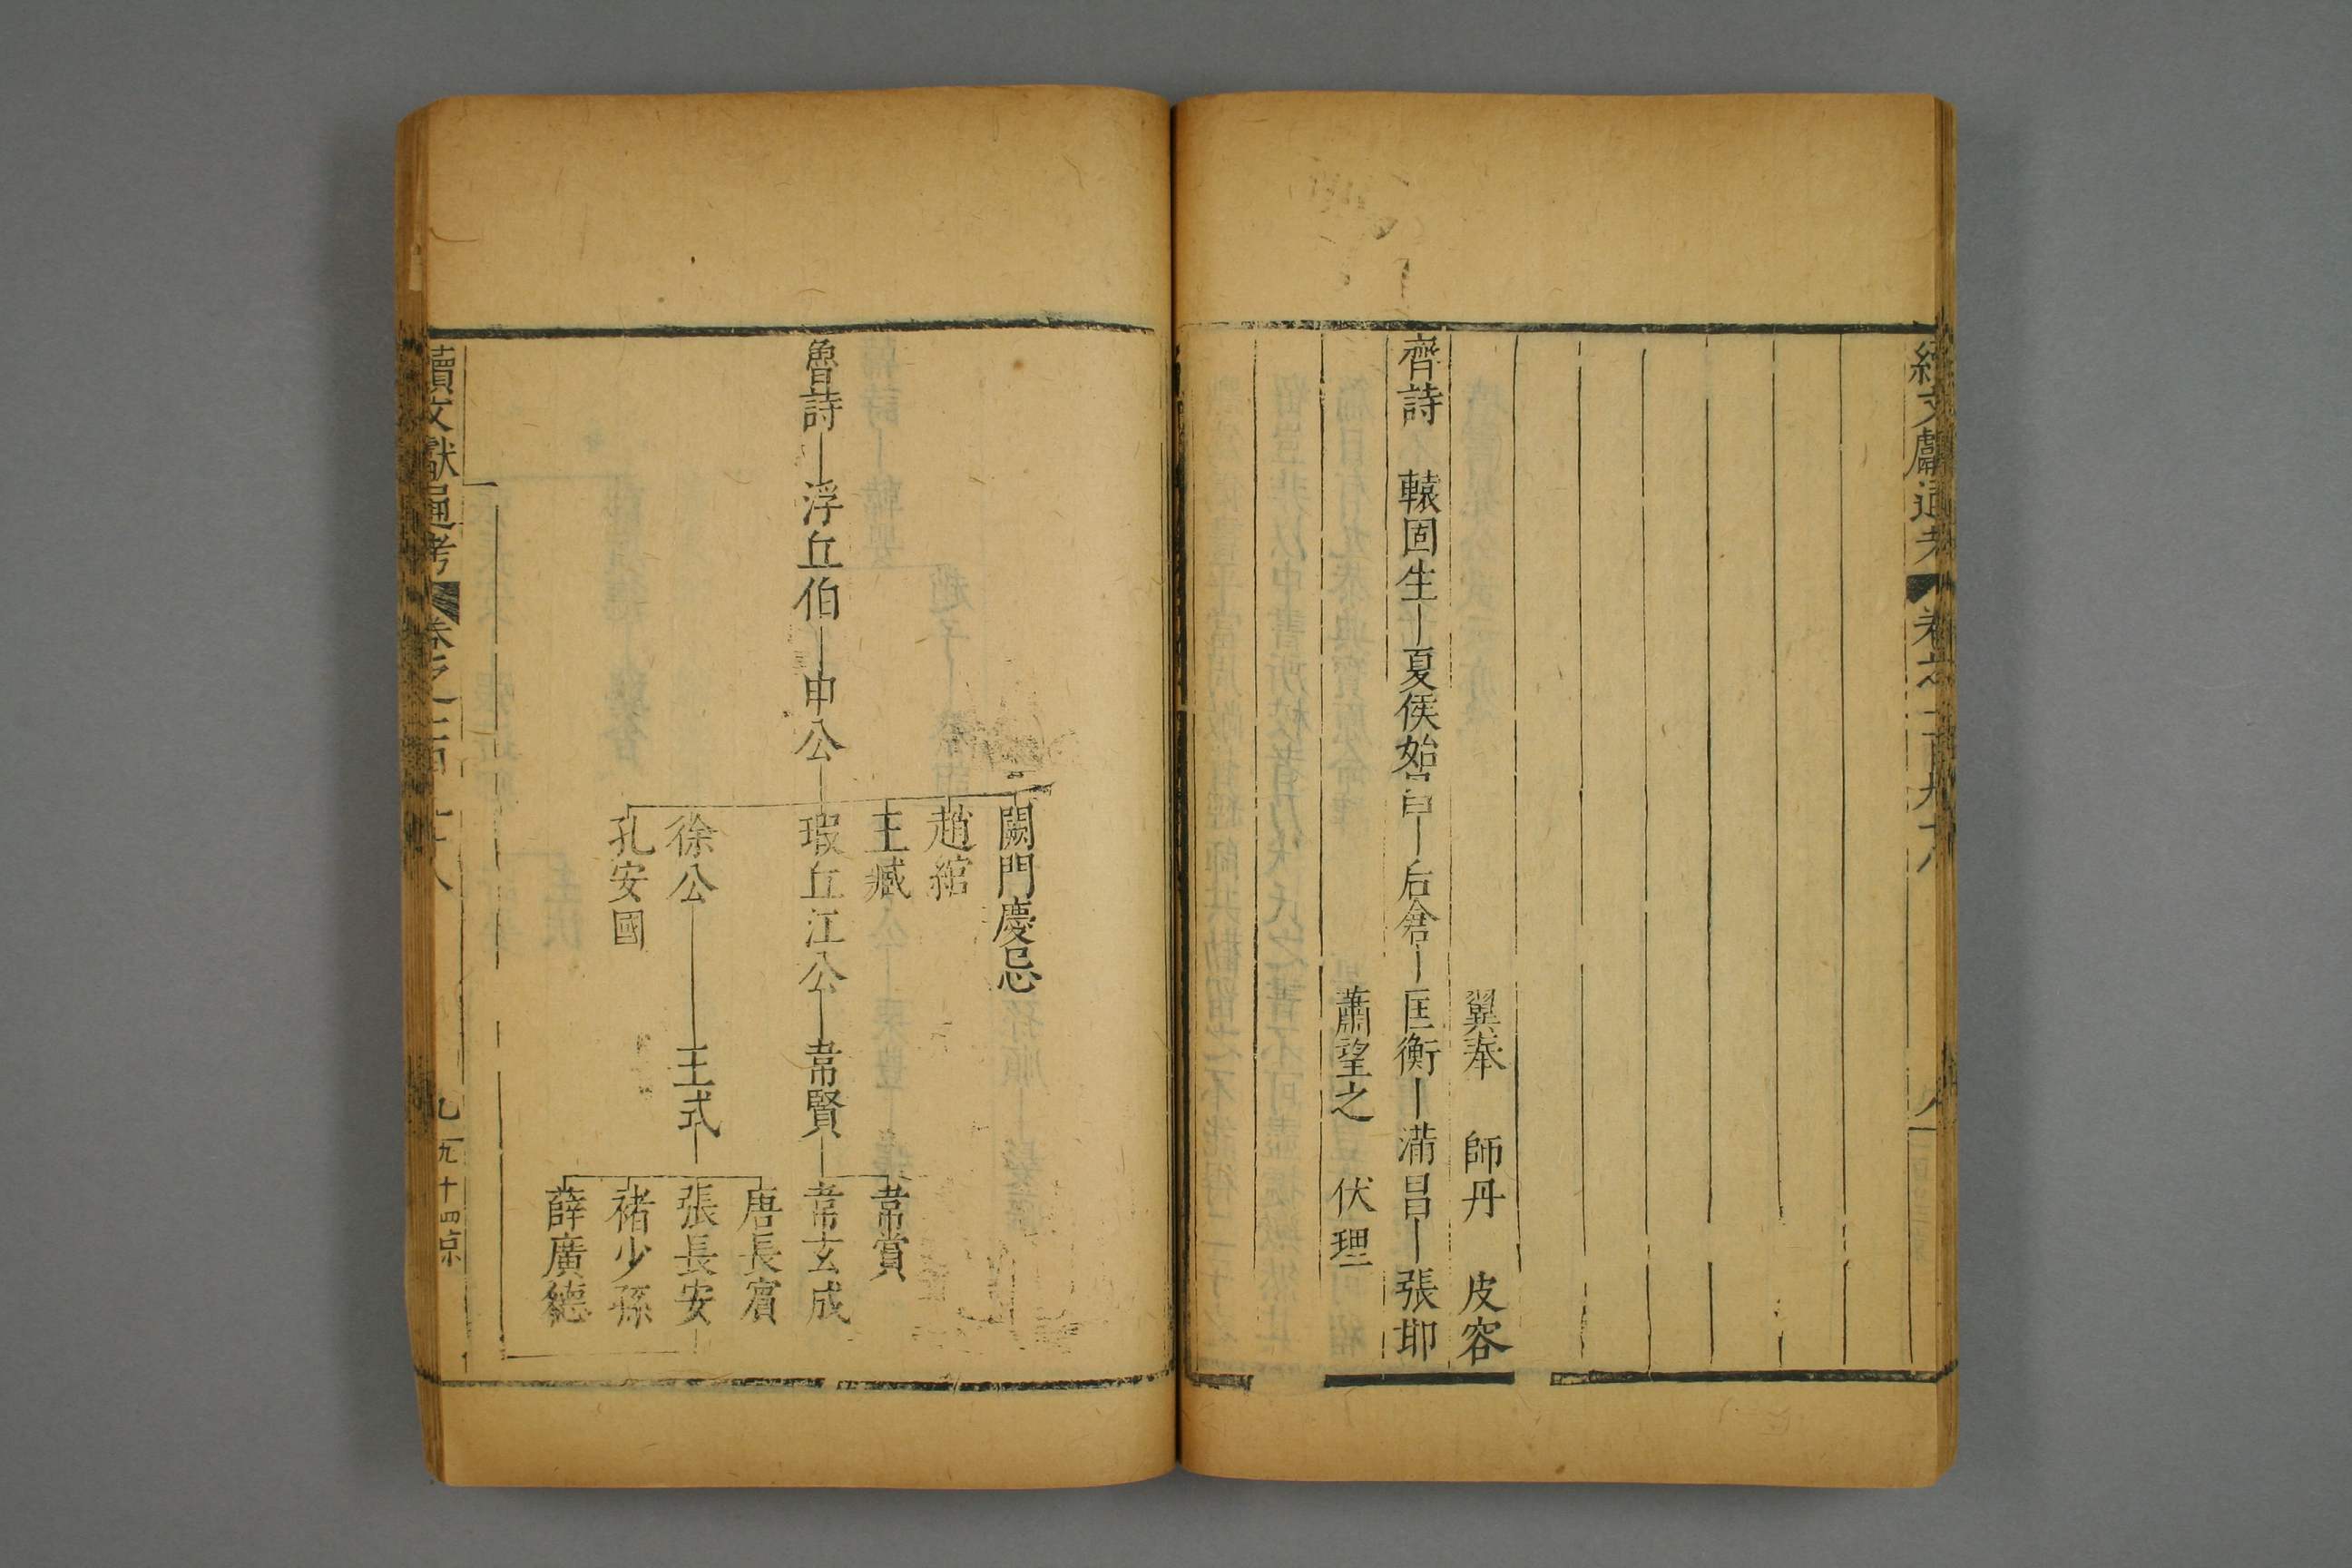 翼奉 師丹 皮容
齊詩 轅固生 夏侯始昌 后倉 匡衡 滿昌 張邯
蕭望之 伏理
闕門慶忌
趙綰
王臧 韋賞
魯詩 浮丘伯 申公 瑕丘江公 韋賢 韋玄成
唐長賓
徐公 王式 張長安
孔安國 褚少孫
薛廣德
續文獻通考